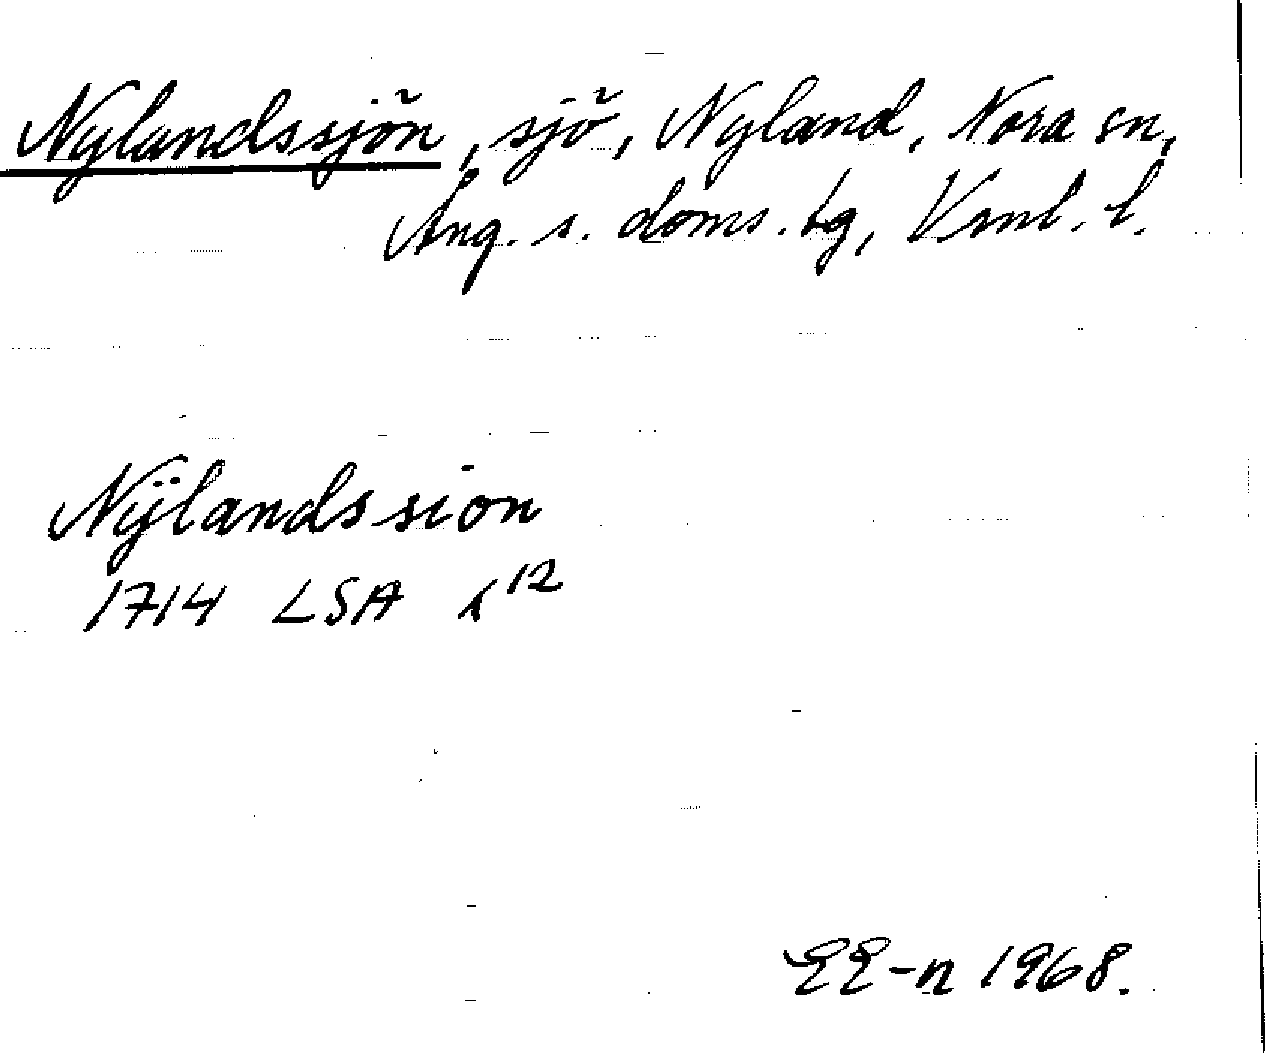 Nylandssjön, sjö, Nyland, Nora sn,
Ång. s. doms. tg, Vrnl. l.
Nÿlandssion
1714 LSA 12
EE-n 1968.